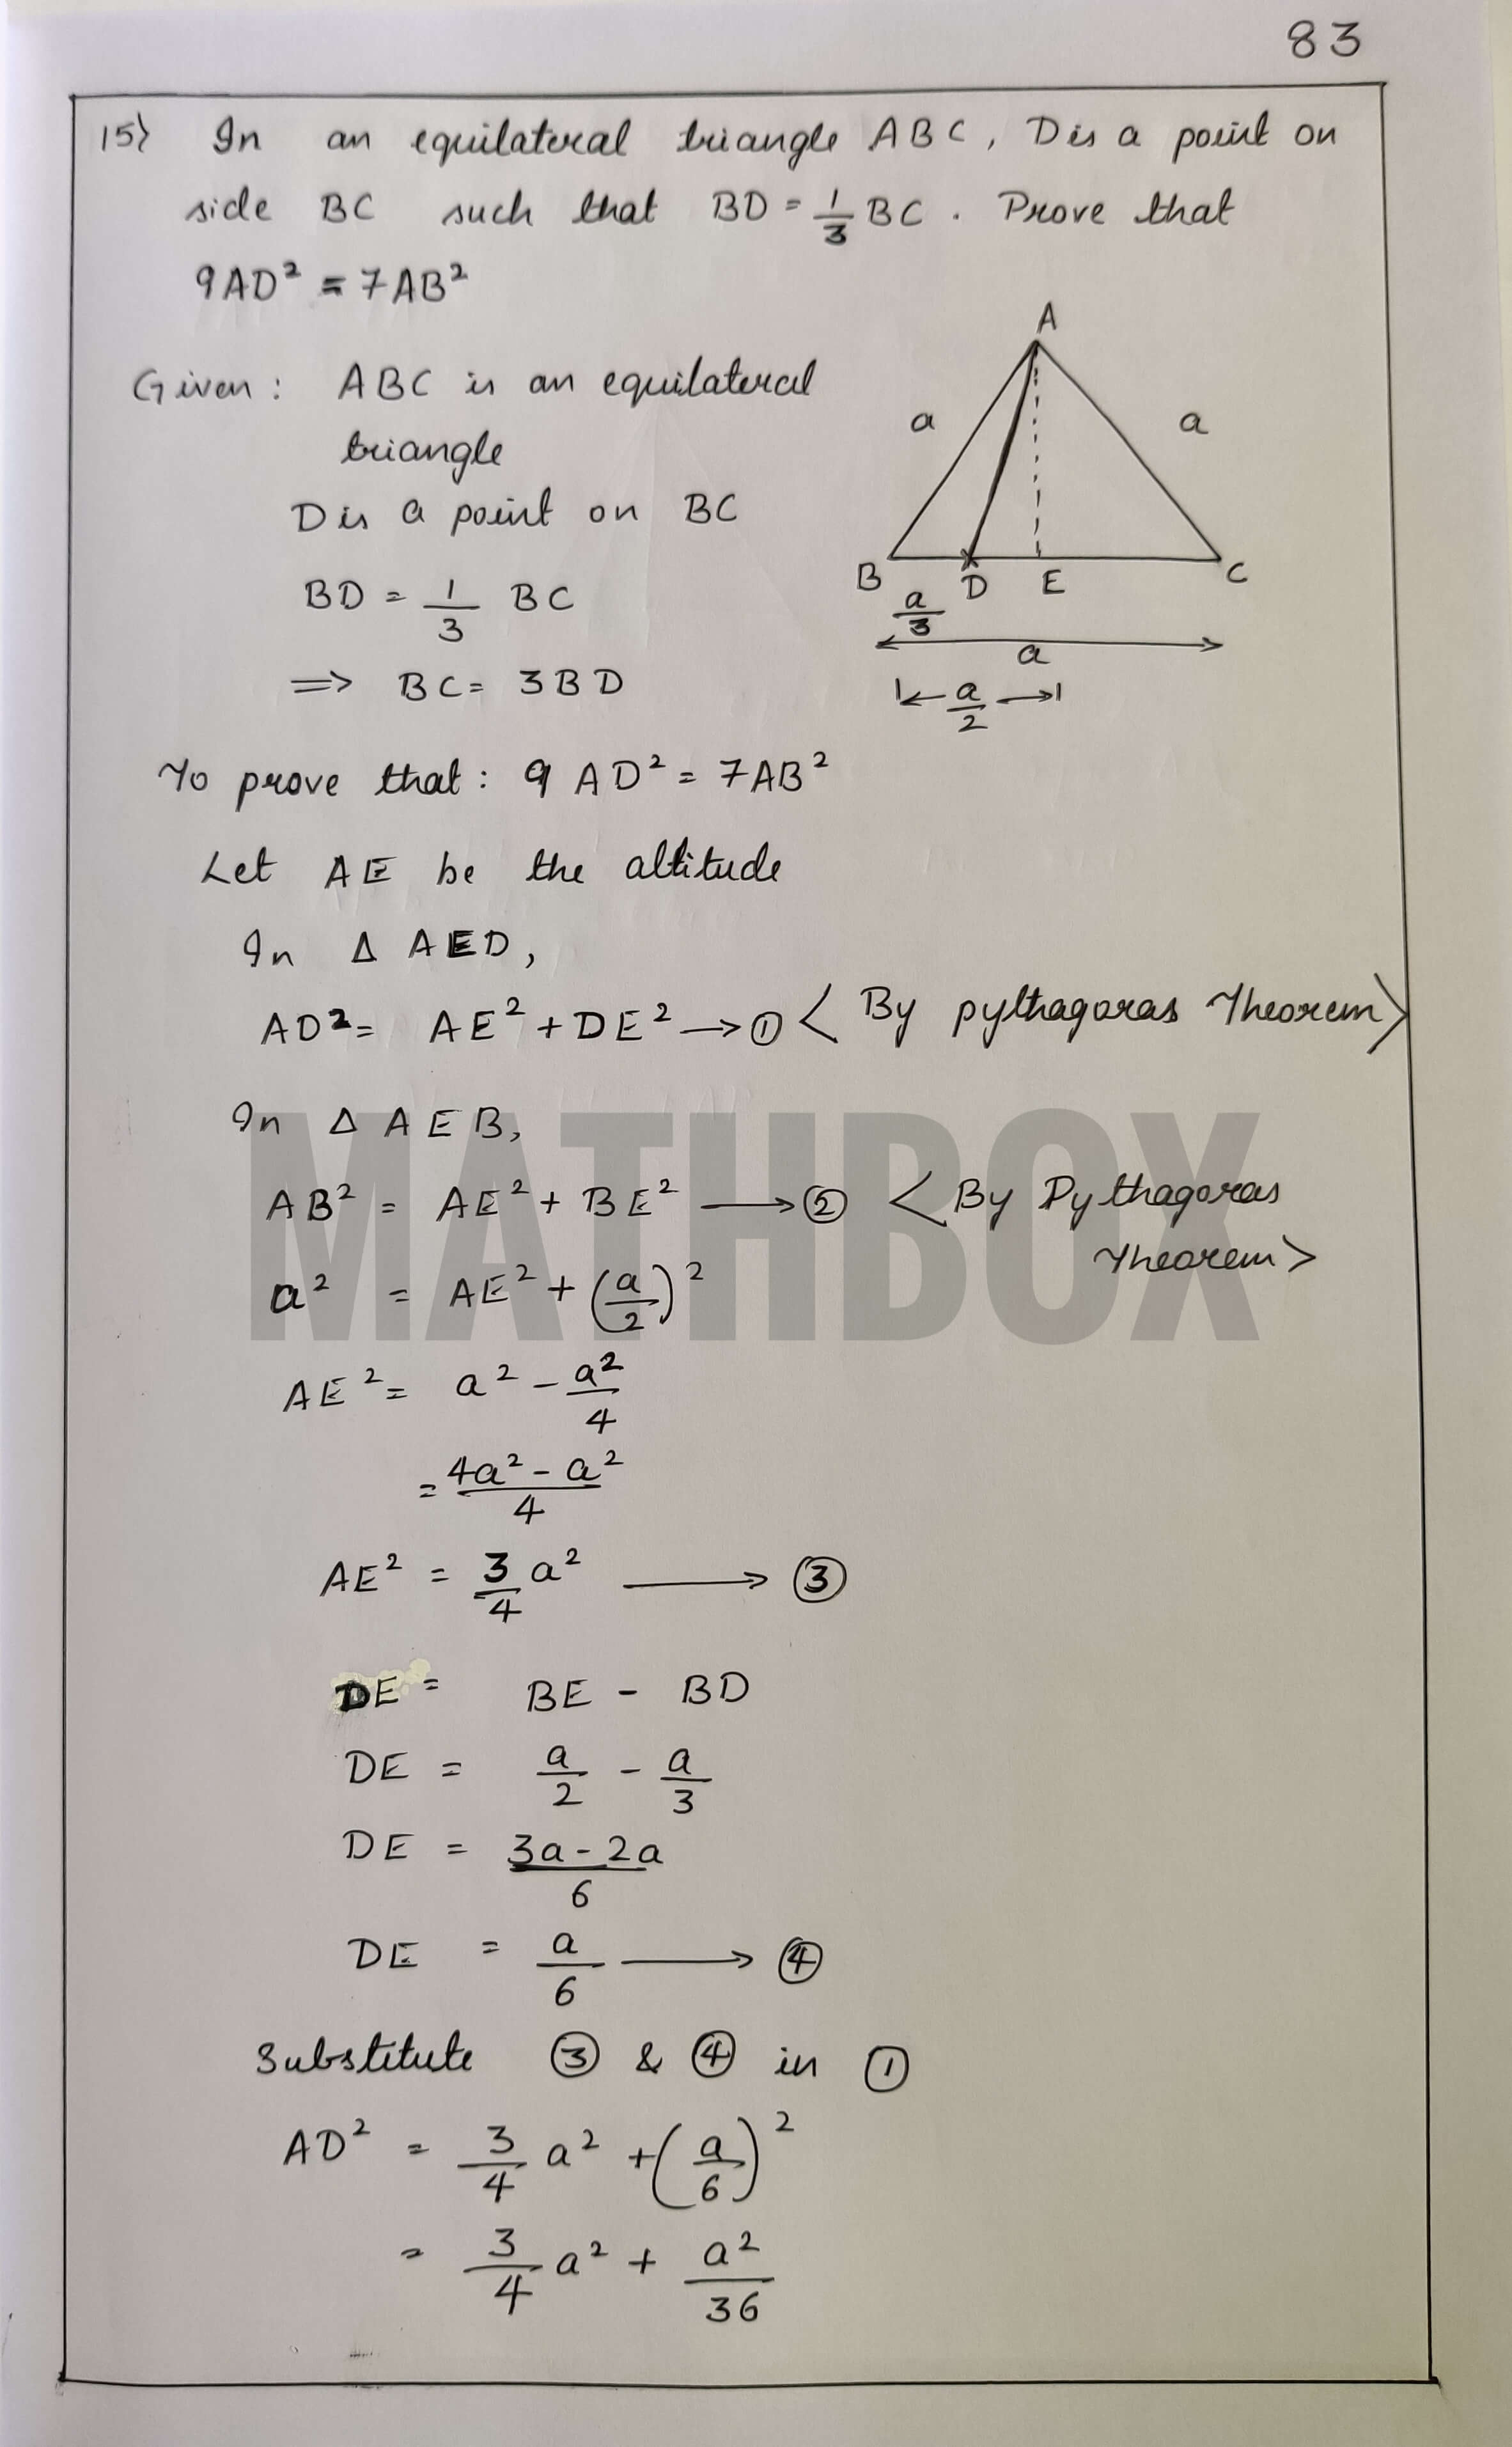 83
15) In an equilateral triangle ABC, D is a point on
side BC such that BD = 1/3 BC . Prove that
9AD² = 7AB²
Given : ABC is an equilateral
triangle
D is a point on BC
BD = 1/3 BC
⇒ BC = 3BD
A
a a
B D E C
a/3
a
a/2
To prove that : 9 AD² = 7AB²
Let AE be the altitude
In Δ AED,
AD² = AE² + DE² → ① < By pythagoras Theorem >
In Δ AEB,
AB² = AE² + BE² → ② < By Pythagoras
Theorem >
a² = AE² + (a/2)²
AE² = a² - a²/4
= 4a² - a²/4
AE² = 3/4 a² → ③
DE = BE - BD
DE = a/2 - a/3
DE = 3a - 2a/6
DE = a/6 → ④
Substitute ③ & ④ in ①
AD² = 3/4 a² + (a/6)²
= 3/4 a² + a²/36
MATHBOX